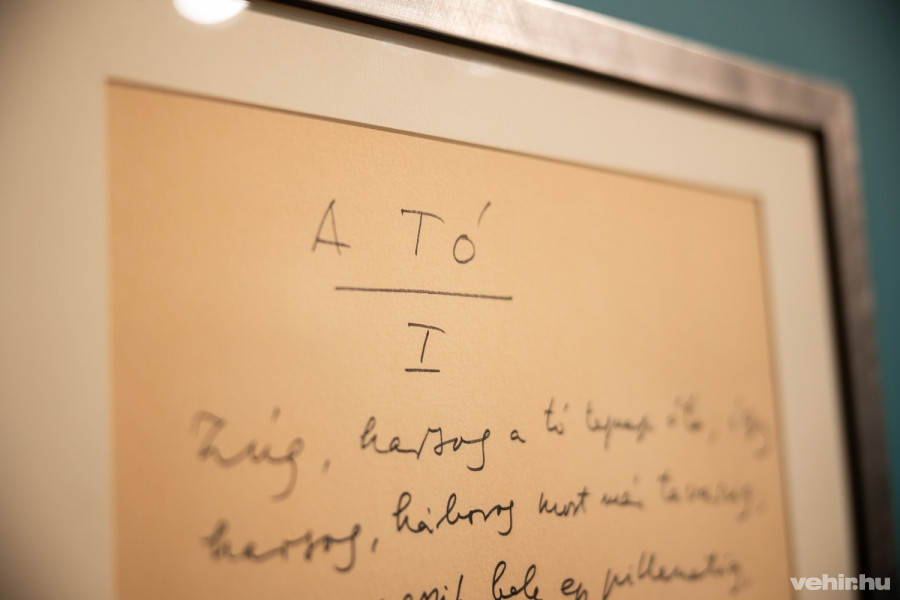 A TÓ
I
Zúg, harsog a tó tegnap óta, így
harsog, háborog most már tavaszig,
bele egy pillanatig,
vehir.hu